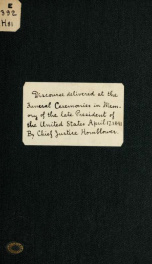 E
392
H81
Discourse delivered at the
Funeral Ceremonies in Mem-
ory of the late President of
the United States April 17, 1841
By Chief Justice Hornblower.